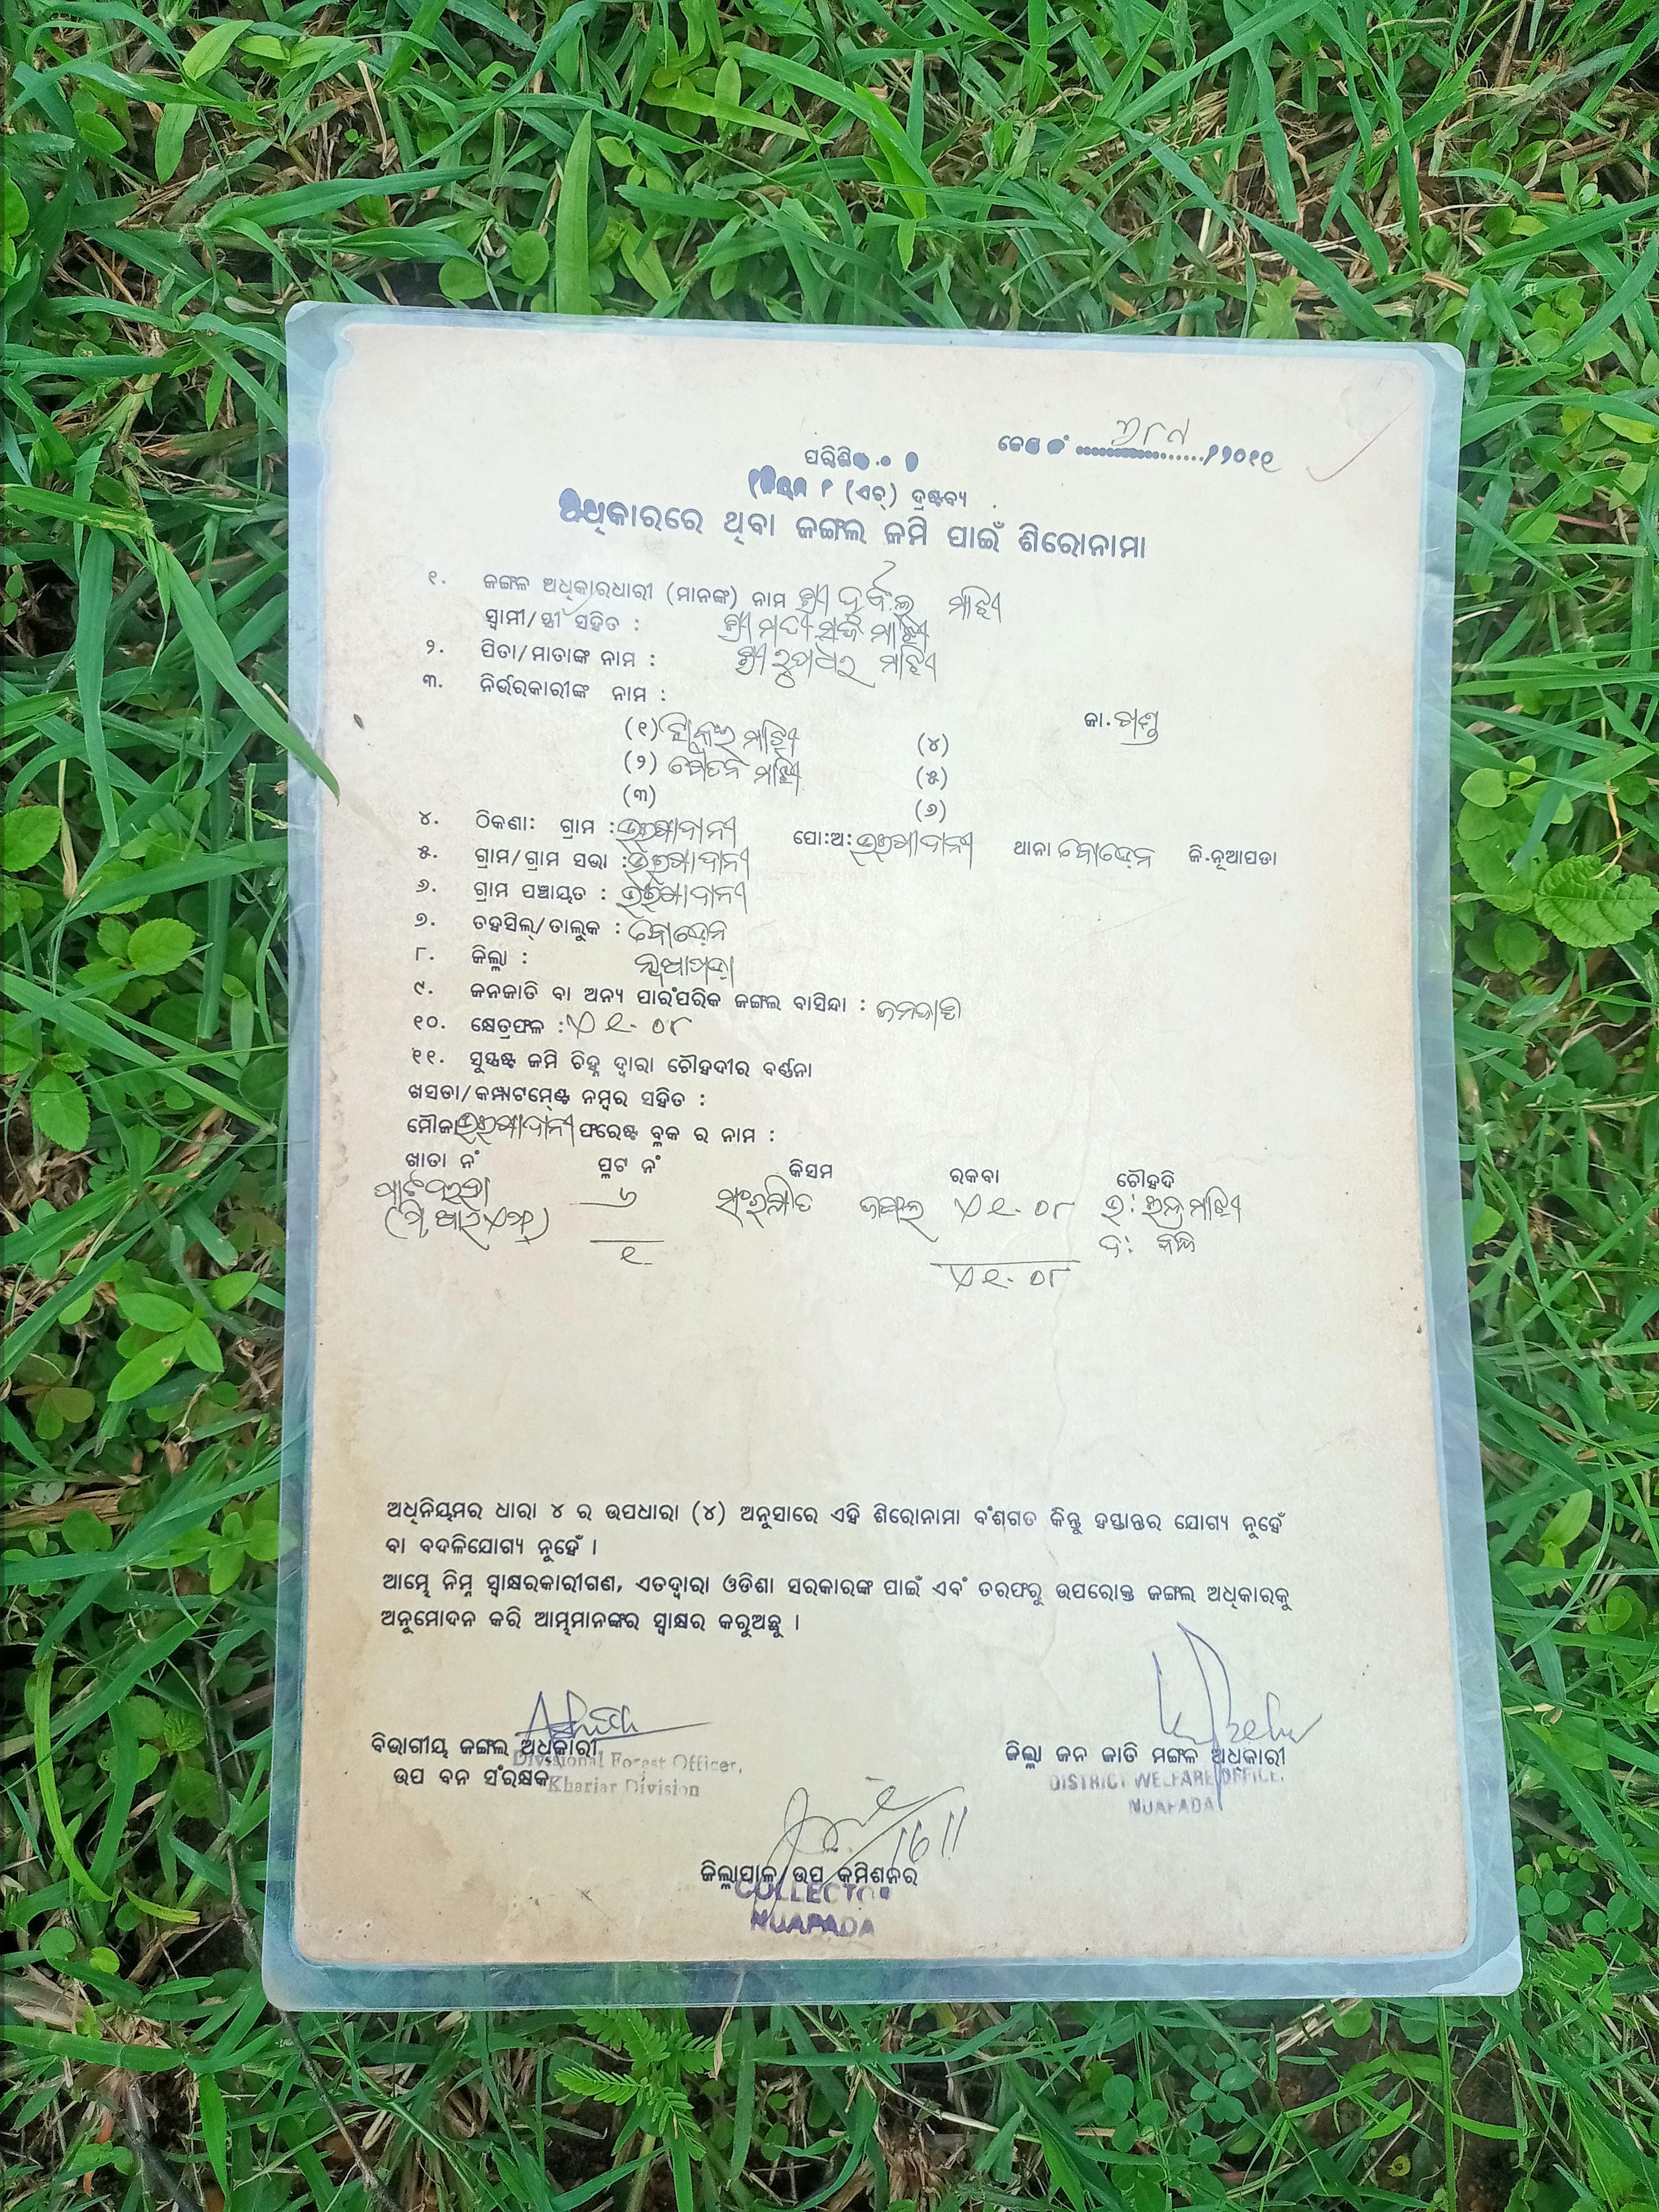 କେଶ ନଂ ୬୮୩ /୨୦୧୧
(ନିୟମ ୮ (ଏଚ୍) ଦ୍ରଷ୍ଟବ୍ୟ
ଅଧିକାରରେ ଥିବା ଜଙ୍ଗଲ ଜମି ପାଇଁ ଶିରୋନାମା
୧. ଜଙ୍ଗଲ ଅଧିକାରଧାରୀ (ମାନଙ୍କ) ନାମ ଶ୍ରୀ ମାଝି
ସ୍ୱାମୀ/ସ୍ତ୍ରୀ ସହିତ : ଶ୍ରୀମତୀ ମାଝି
୨. ପିତା/ମାତାଙ୍କ ନାମ : ଶ୍ରୀ ରୂପଧର ମାଝି
୩. ନିର୍ଭରକାରୀଙ୍କ ନାମ :
ଜା. ଖଣ୍ଡ
(୧) ମାଝି (୪)
(୨) ମାଝି (୫)
(୩) (୬)
୪. ଠିକଣା: ଗ୍ରାମ : ପୋ:ଅ: ଥାନା ବୋଡେନ ଜି.ନୂଆପଡା
୫. ଗ୍ରାମ/ଗ୍ରାମ ସଭା :
୬. ଗ୍ରାମ ପଞ୍ଚାୟତ :
୭. ତହସିଲ୍/ତାଲୁକ : ବୋଡେନ
୮. ଜିଲ୍ଲା : ନୂଆପଡା
୯. ଜନଜାତି ବା ଅନ୍ୟ ପାରଂପରିକ ଜଙ୍ଗଲ ବାସିନ୍ଦା : ଜନଜାତି
୧୦. କ୍ଷେତ୍ରଫଳ : ଏ ୧. ୦୮
୧୧. ସୁସ୍ପଷ୍ଟ ଜମି ଚିହ୍ନ ଦ୍ୱାରା ଚୌହଦୀର ବର୍ଣ୍ଣନା
ଖସଡା/କମ୍ପାଟମେଣ୍ଟ ନମ୍ବର ସହିତ :
ମୌଜା ଫରେଷ୍ଟ ବ୍ଲକ ର ନାମ :
ଖାତା ନଂ ପ୍ଲଟ ନଂ କିସମ ରକବା ଚୌହଦି
୬ ସଂରକ୍ଷିତ ଜଙ୍ଗଲ ଏ ୧. ୦୮ ଉ: ଇନ୍ଦ୍ର ମାଝି
(ପି.ଆର.ଏଫ୍) ଦ:
୧ ଏ ୧. ୦୮
ଅଧିନିୟମର ଧାରା ୪ ର ଉପଧାରା (୪) ଅନୁସାରେ ଏହି ଶିରୋନାମା ବଂଶଗତ କିନ୍ତୁ ହସ୍ତାନ୍ତର ଯୋଗ୍ୟ ନୁହେଁ
ବା ବଦଳିଯୋଗ୍ୟ ନୁହେଁ ।
ଆମ୍ଭେ ନିମ୍ନ ସ୍ୱାକ୍ଷରକାରୀଗଣ, ଏତଦ୍ୱାରା ଓଡିଶା ସରକାରଙ୍କ ପାଇଁ ଏବଂ ତରଫରୁ ଉପରୋକ୍ତ ଜଙ୍ଗଲ ଅଧିକାରକୁ
ଅନୁମୋଦନ କରି ଆମ୍ଭମାନଙ୍କର ସ୍ୱାକ୍ଷର କରୁଅଛୁ ।
ବିଭାଗୀୟ ଜଙ୍ଗଲ ଅଧିକାରୀ
Divisional Forest Officer,
ଉପ ବନ ସଂରକ୍ଷକ
Khariar Division
ଜିଲ୍ଲା ଜନ ଜାତି ମଙ୍ଗଳ ଅଧିକାରୀ
DISTRICT WELFARE OFFICE,
NUAPADA
ଜିଲ୍ଲାପାଳ/ଉପ କମିଶନର
COLLECTOR
NUAPADA